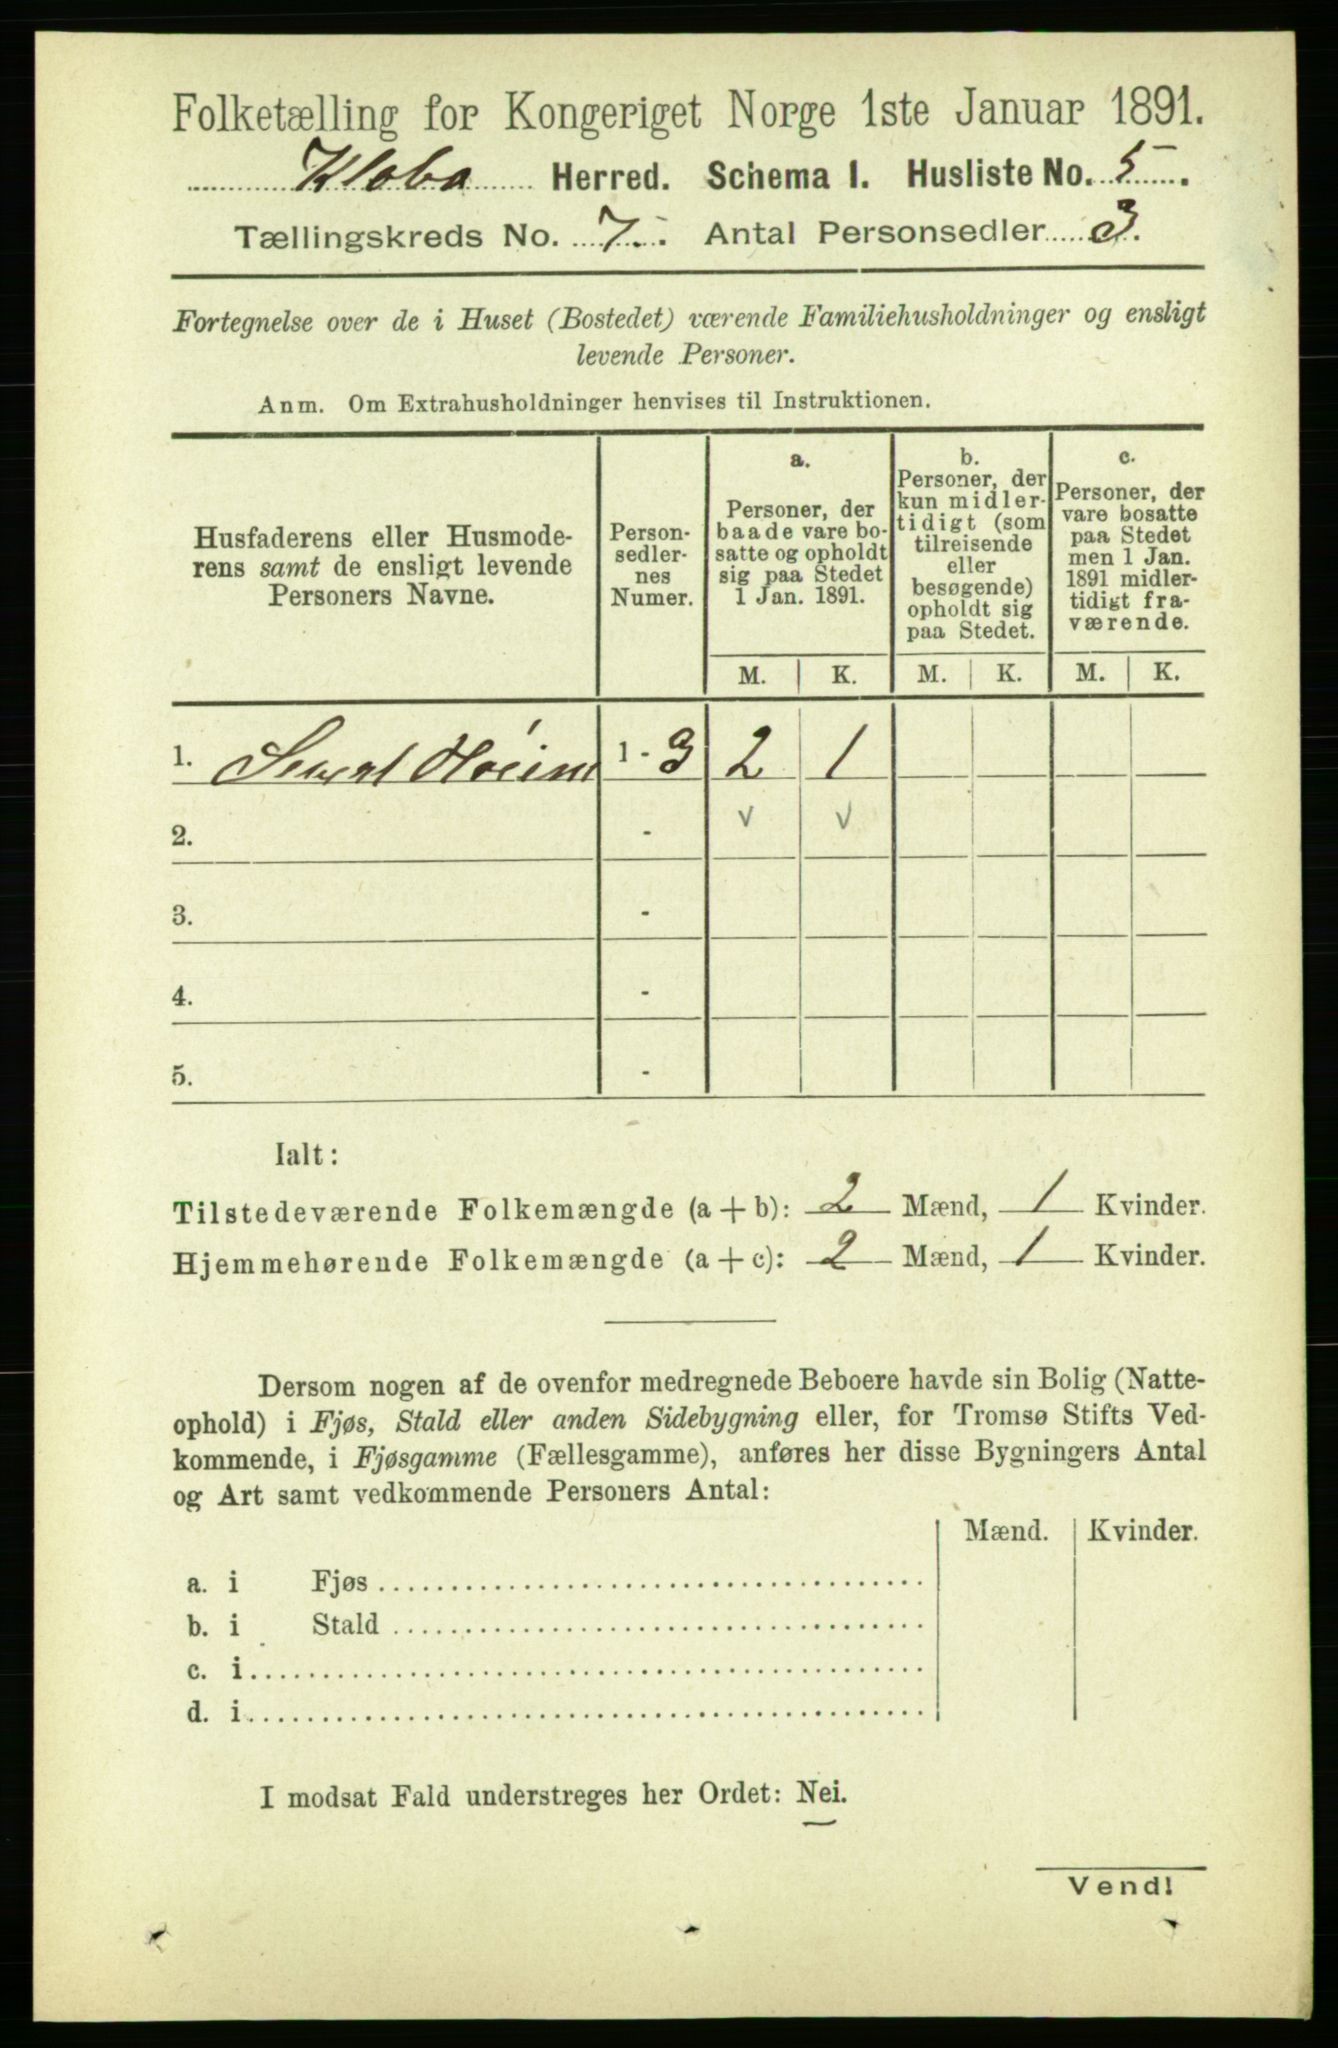 Folketælling for Kongeriget Norge 1ste Januar 1891.
Kløbo Herred. Schema I. Husliste No. 5.
Tællingskreds No. 7. Antal Personsedler 3.
Fortegnelse over de i Huset (Bostedet) værende Familiehusholdninger og ensligt
levende Personer.
Anm. Om Extrahusholdninger henvises til Instruktionen.
Husfaderens eller Husmode-
rens samt de ensligt levende
Personers Navne.
Person-
sedler-
nes
Numer.
a.
Personer, der
baade vare bo-
satte og opholdt
sig paa Stedet
1 Jan. 1891.
b.
Personer, der
kun midler-
tidigt (som
tilreisende
eller
besøgende)
opholdt sig
paa Stedet.
c.
Personer, der
vare bosatte
paa Stedet
men 1 Jan.
1891 midler-
tidigt fra-
værende.
M. K. M. K. M. K.
1. 1 - 3 2 1
2. - v v
3. -
4. -
5. -
Ialt:
Tilstedeværende Folkemængde (a + b): 2 Mænd, 1 Kvinder.
Hjemmehørende Folkemængde (a + c): 2 Mænd, 1 Kvinder.
Dersom nogen af de ovenfor medregnede Beboere havde sin Bolig (Natte-
ophold) i Fjøs, Stald eller anden Sidebygning eller, for Tromsø Stifts Ved-
kommende, i Fjøsgamme (Fællesgamme), anføres her disse Bygningers Antal
og Art samt vedkommende Personers Antal:
Mænd. Kvinder.
a. i Fjøs
b. i Stald
c. i
d. i
I modsat Fald understreges her Ordet: Nei.
Vend!